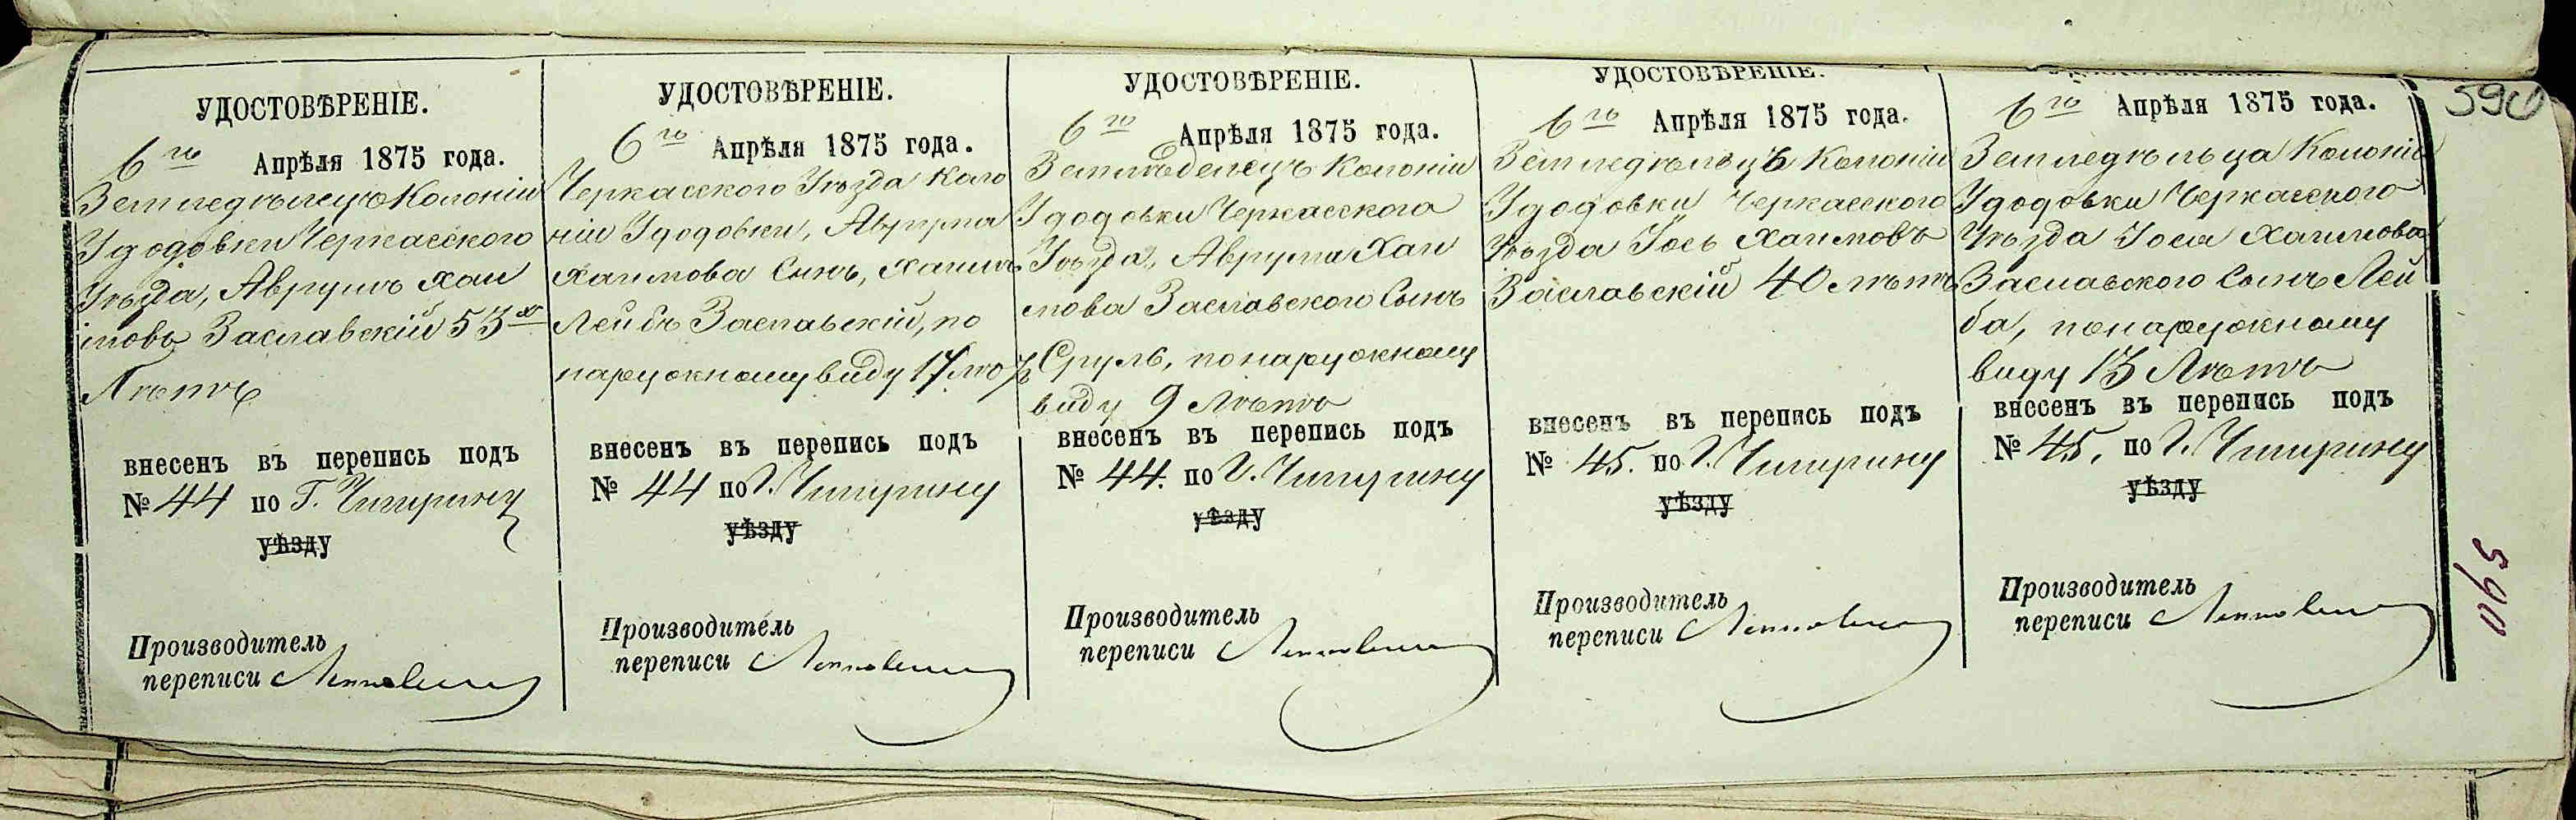 УДОСТОВѢРЕНІЕ.
6го Апрѣля 1875 года.
Земледѣлецъ Колоніи
Удодовки Черкасского
Уѣзда, Аврумъ Хаи
мовъ Заславскій 53х
Лѣтъ
внесенъ въ перепись подъ
№ 44 по Г. Чигирину
уѣзду
Производитель
переписи
УДОСТОВѢРЕНІЕ.
6го Апрѣля 1875 года.
Черкасского Уѣзда Коло
ніи Удодовки, Аврума
Хаимова Сынъ, Хаимъ
Лейбъ Заславскій, по
наружному виду 17 лѣтъ
внесенъ въ перепись подъ
№ 44 по Г. Чигирину
уѣзду
Производитель
переписи
УДОСТОВѢРЕНІЕ.
6го Апрѣля 1875 года.
Земледелецъ Колоніи
Удодовки Черкасского
Уѣзда, Аврума Хаи
мова Заславского Сынъ
Сруль, по наружному
виду 9 Лѣтъ
внесенъ въ перепись подъ
№ 44. по Г. Чигирину
уѣзду
Производитель
переписи
УДОСТОВѢРЕНІЕ.
6го Апрѣля 1875 года.
Земледѣлецъ Колоніи
Удодовки Черкасского
Уѣзда Іось Хаимовъ
Заславскій 40 лѣтъ
внесенъ въ перепись подъ
№ 45. по Г. Чигирину
уѣзду
Производитель
переписи
6го Апрѣля 1875 года.
Земледѣльца Колоніи
Удодовки Черкасского
Уѣзда Іося Хаимова
Заславского Сынъ Лей
ба, по наружному
виду 13 Лѣтъ
внесенъ въ перепись подъ
№ 45, по Г. Чигирину
уѣзду
Производитель
переписи
590
590